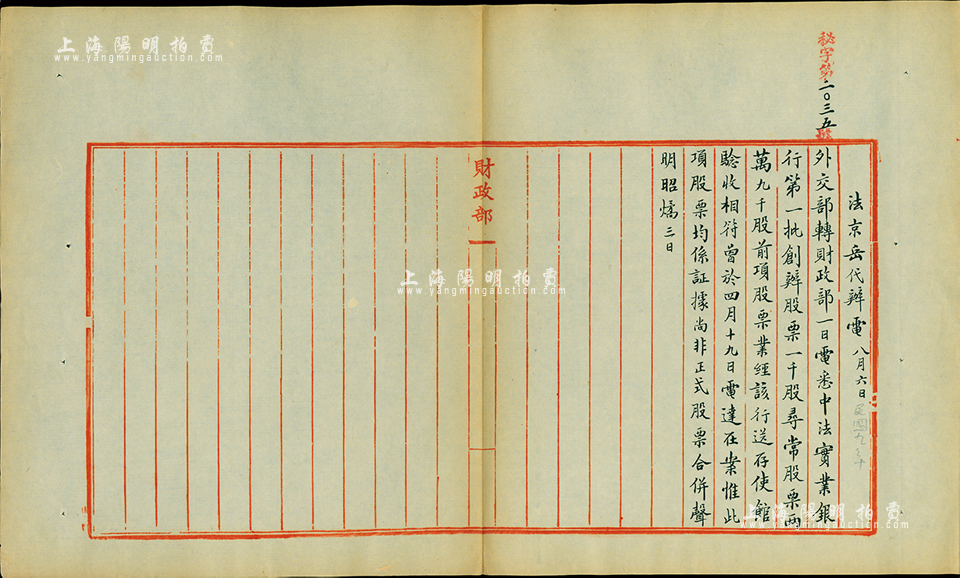 秘字第二〇三五號
法京岳代辦電 八月六日
外交部轉財政部一日電悉中法實業銀
行第一批創辦股票一千股尋常股票兩
萬九千股前項股票業經該行送存使館
驗收相符曾於四月十九日電達在案惟此
項股票均係証據尚非正式股票合併聲
明昭燏三日
財政部
上海陽明拍賣
www.yangmingauction.com
上海陽明拍賣
www.yangmingauction.com
上海陽明拍賣
www.yangmingauction.com
上海陽明拍賣
www.yangmingauction.com
上海陽明拍賣
www.yangmingauction.com